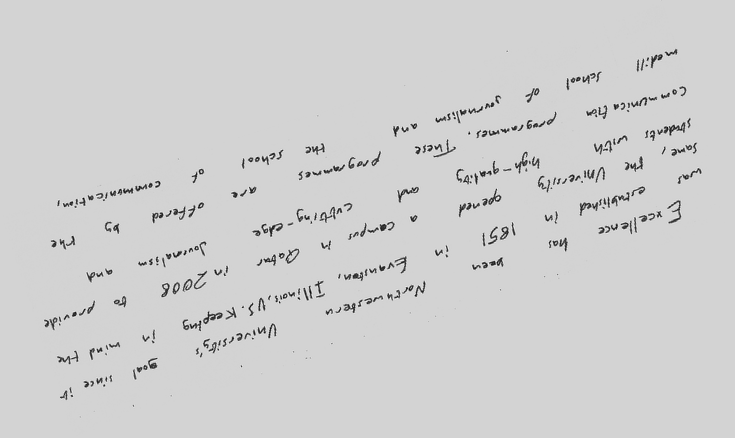 Excellence has been Northwestern University's goal since it
was established in 1851 in Evanston, Illinois, US. Keeping in mind the
same, the University opened a campus in Qatar in 2008 to provide
students with high-quality and cutting-edge Journalism and
Communication programmes. These programmes are offered by the
medill school of journalism and the school of communication,